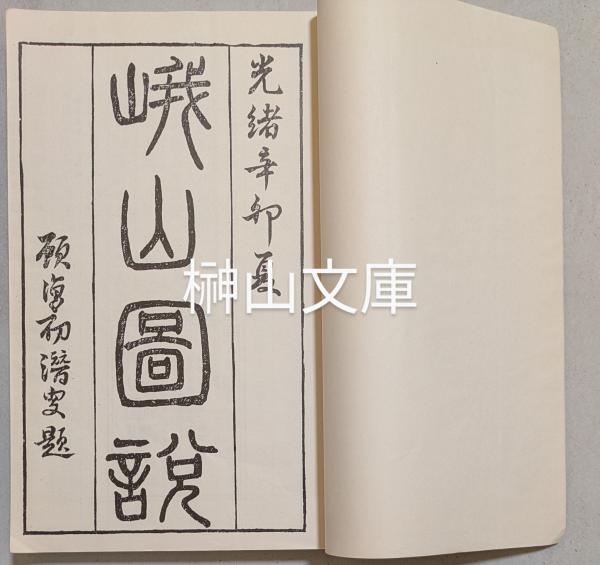 光緒辛卯夏
峨山圖說
顧復初潛叟題
榊山文庫